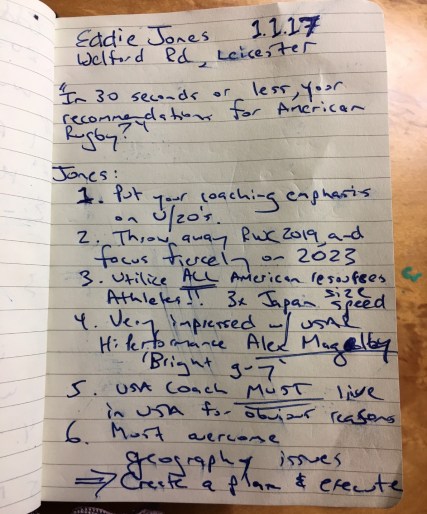 Eddie Jones 1.1.17
Welford Rd, Leicester
"In 30 seconds or less, your
recommendations for American
Rugby?"
Jones:
1. Put your coaching emphasis
on U/20's.
2. Throw away RWC 2019 and
focus fiercely on 2023
3. Utilize ALL American resources
Athletes!! 3x Japan size speed
4. Very impressed w/ USAR
Hi Performance Alex Magelby
'Bright guy'
5. USA Coach MUST live
in USA for obvious reasons
6. Must overcome
geography issues
⇒ Create a plan & execute